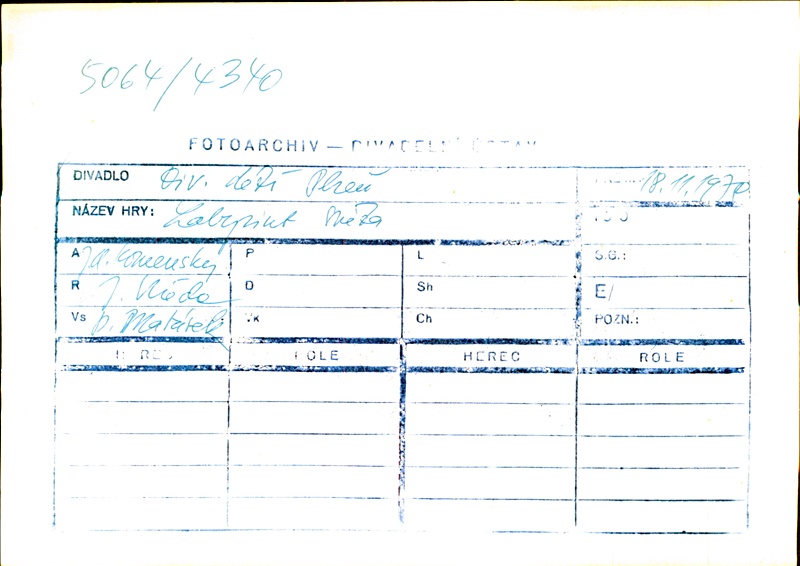 5064/4340
FOTOARCHIV — DIVADELNÍ ÚSTAV
DIVADLO Div. dětí Plzeň 18.11.1970
NÁZEV HRY: Labyrint světa
A J.A. Komenský P L S.G.:
R J. D Sh E/
Vs P. Matásek Vk Ch POZN.:
HEREC ROLE HEREC ROLE